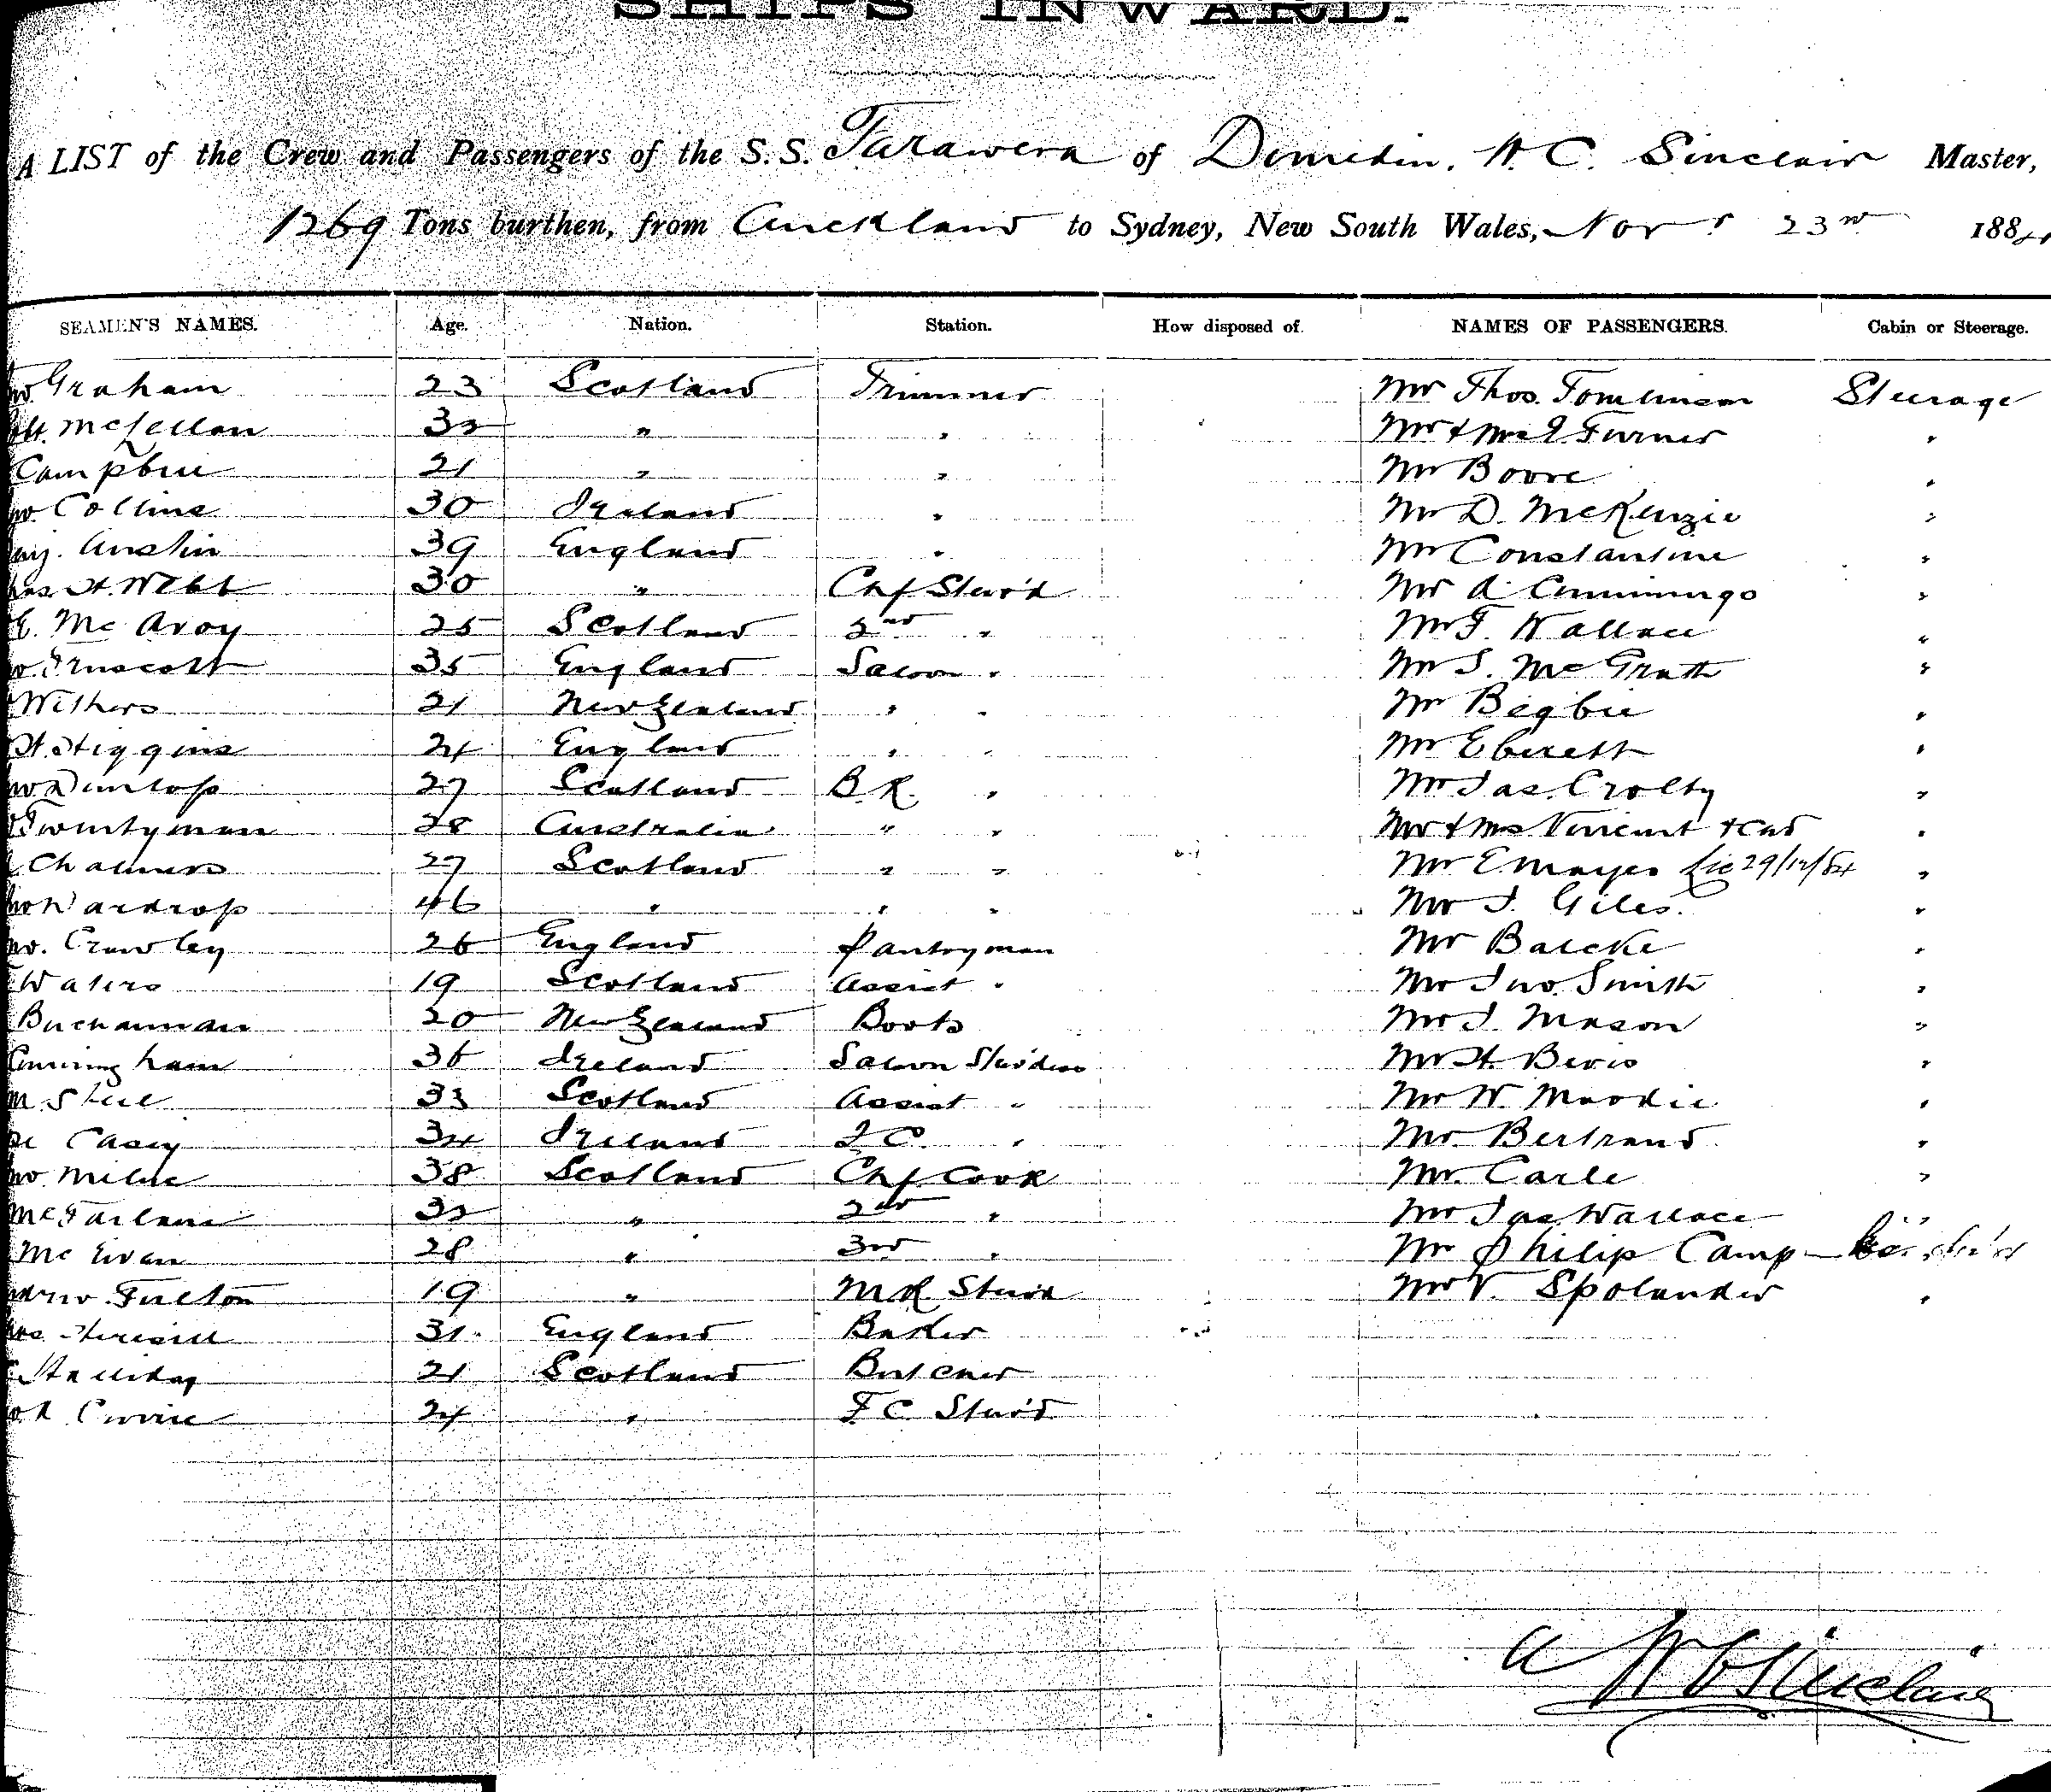 SHIPS INWARD.
A LIST of the Crew and Passengers of the S.S. Tarawera of Dunedin, W. C. Sinclair Master,
1269 Tons burthen, from Auckland to Sydney, New South Wales, Novr 23rd 1884
SEAMEN'S NAMES. Age. Nation. Station. How disposed of. NAMES OF PASSENGERS. Cabin or Steerage.
Graham 23 Scotland Trimmer Mr Thos. Tomlinson Steerage
McLellan 32 " " Mr & Mrs Turner "
Campbell 21 " " Mr Boore "
Collins 30 Ireland " Mr D. McKenzie "
Austin 39 England " Mr Constantine "
H. Webb 30 " Chf Stew'd Mr A. Cummings "
E. McAvoy 25 Scotland 2nd " Mr F. Wallace "
Truscott 35 England Saloon " Mr S. McGrath "
Withers 21 New Zealand " " Mr Begbie "
H. Higgins 24 England " " Mr Eberett "
Dunlop 27 Scotland B.R. " Mr Jas. Crolty "
Twentyman 28 Australia " " Mr & Mrs Vincent "
Chalmers 27 Scotland " " Mr E. Mayes 29/12/84 "
Wardrop 46 " " " Mr J. Giles "
Crawley 26 England Pantryman Mr Barcke "
Waters 19 Scotland Assist " Mr Jno. Smith "
Buchannan 20 New Zealand Boots Mr J. Mason "
Cunningham 36 Ireland Saloon Stew'dess Mr H. Bevis "
Steel 33 Scotland Assist " Mr W. Moodie "
Casey 34 Ireland 2 C. " Mr Bertrand "
Milne 38 Scotland Chf Cook Mr. Carle "
McFarlane 32 " 2nd " Mr Jas. Wallace "
McEwan 28 " 3rd " Mr Philip Camp
Fulton 19 " M.R. Stew'd Mr V. Spolander "
31 England Baker
Halliday 21 Scotland Butcher
24 " F C Stew'd
W C Sinclair